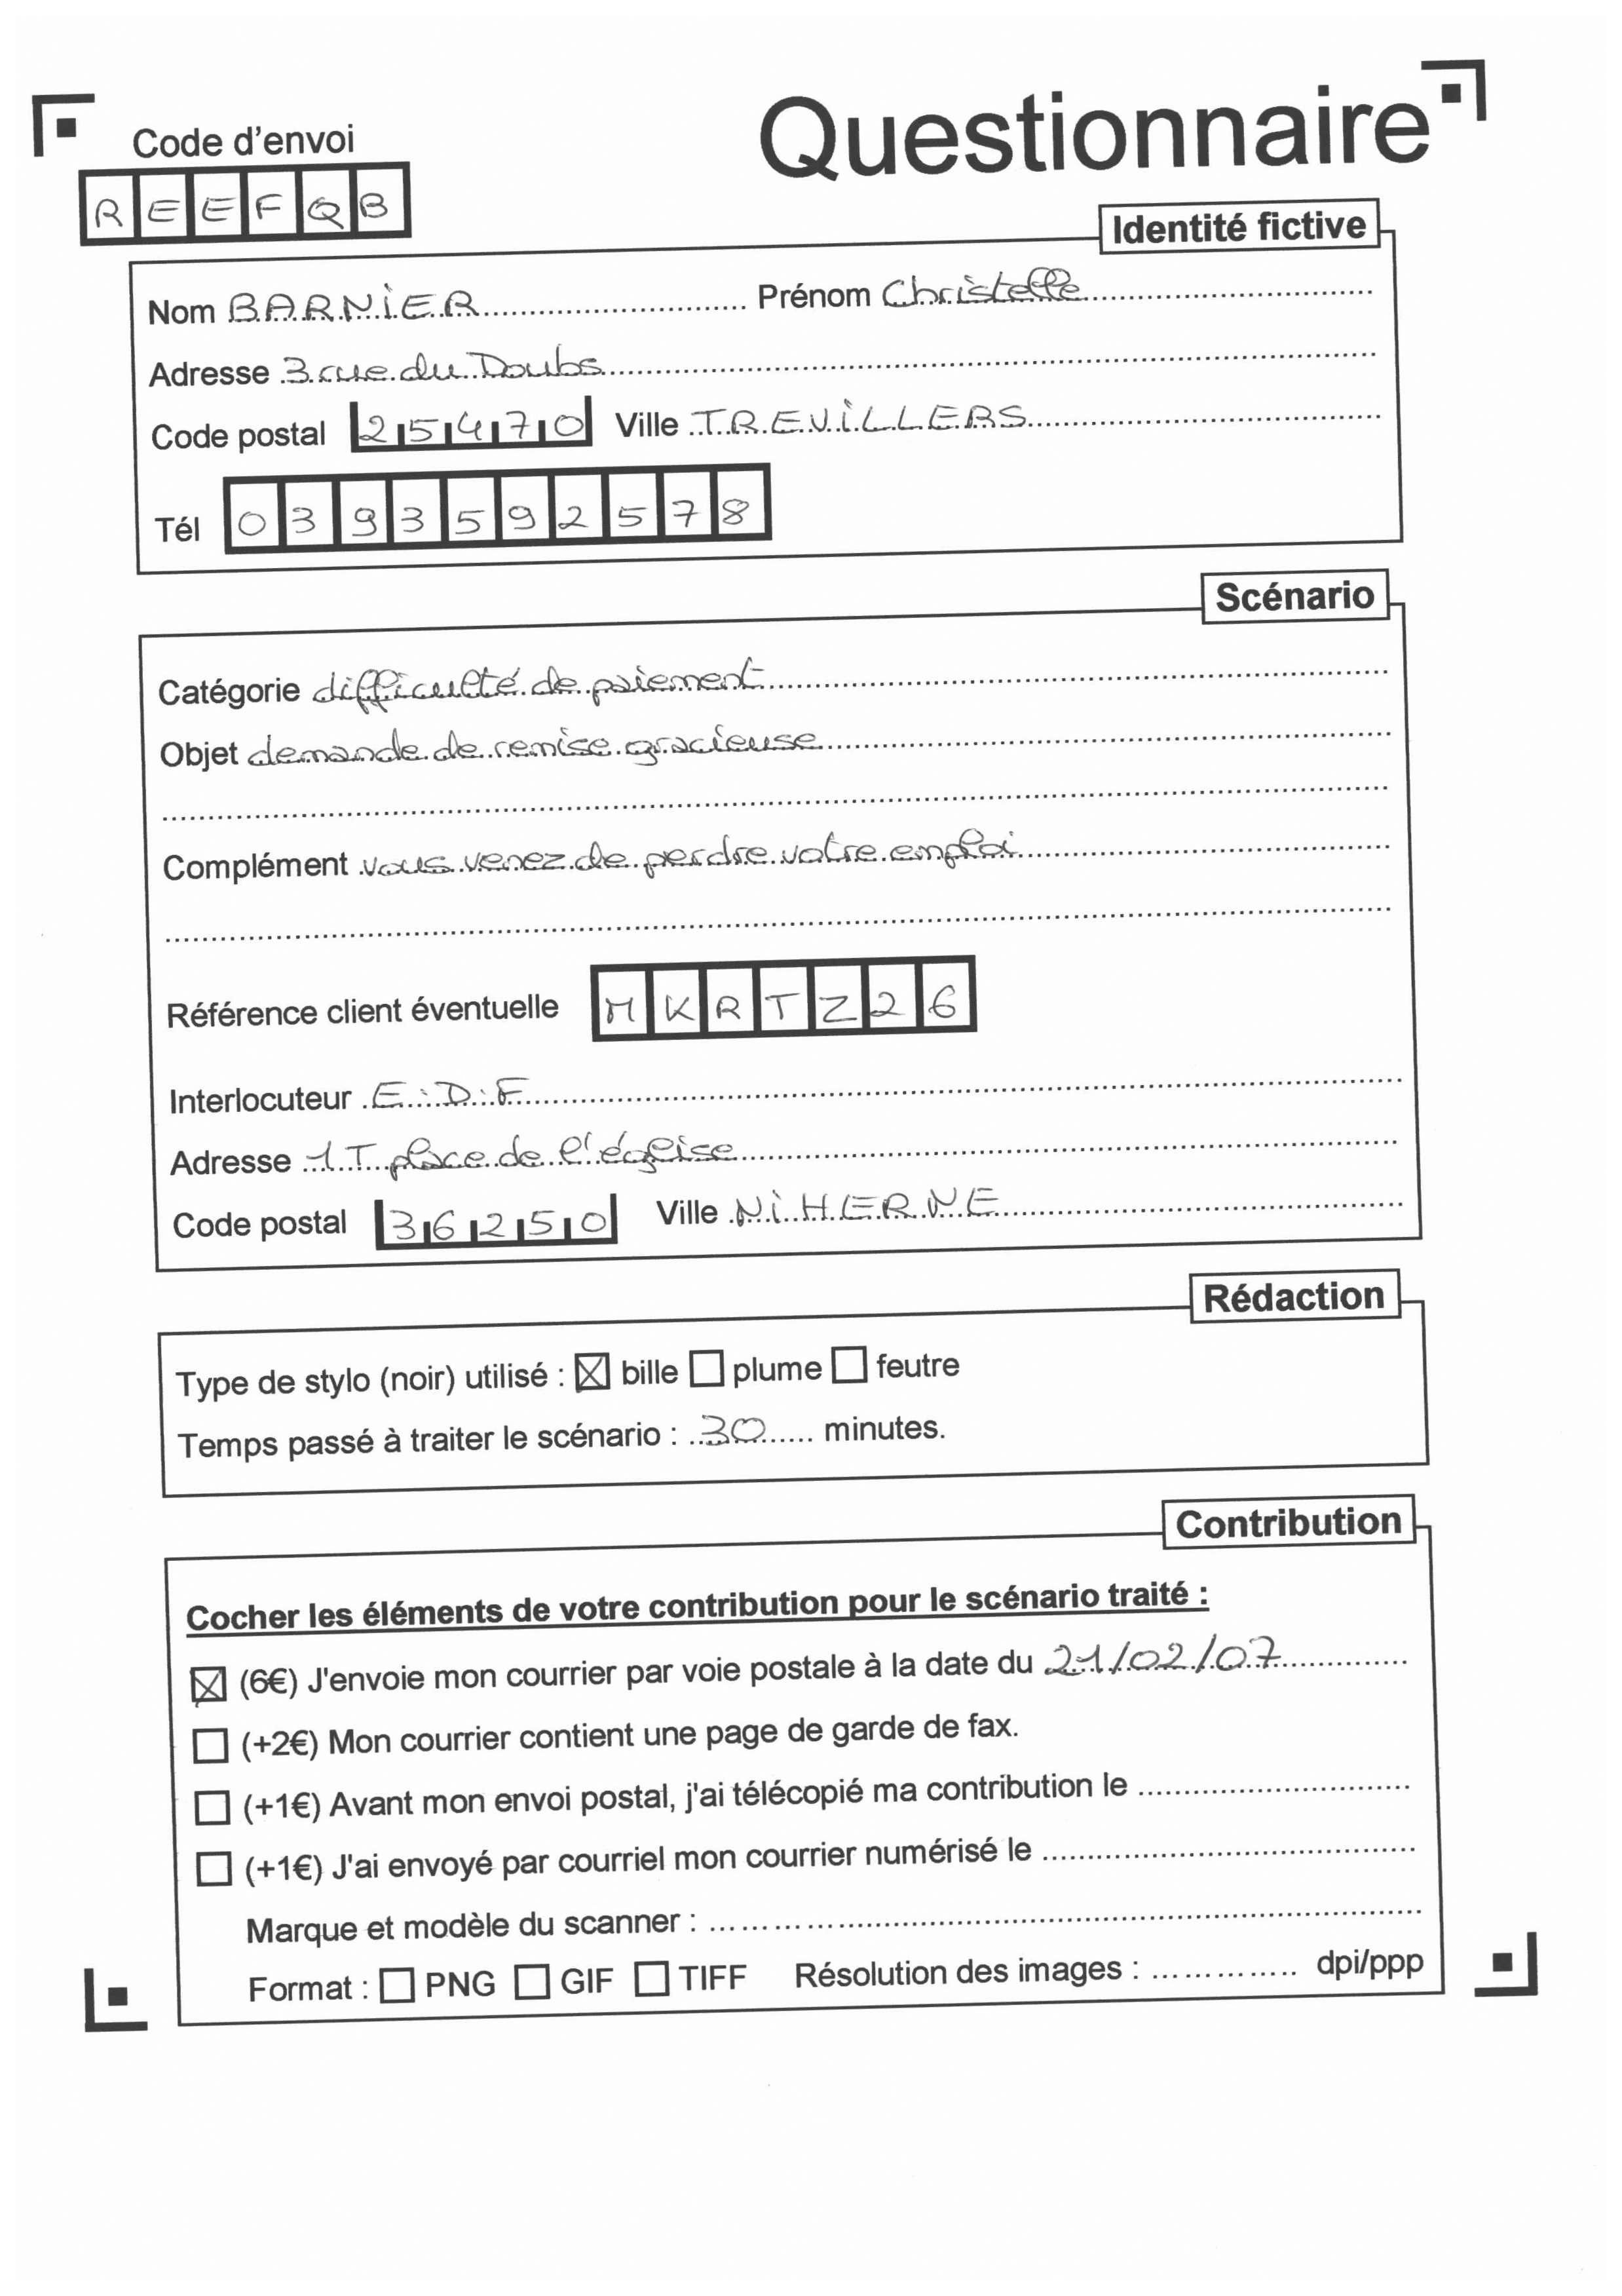 Questionnaire
Code d'envoi
REEFQB
Identité fictive
Nom BARNIER Prénom Christelle
Adresse 3 rue du Doubs
Code postal 25470 Ville TREVILLERS
Tél 0393592578
Scénario
Catégorie difficulté de paiement
Objet demande de remise gracieuse
Complément vous venez de perdre votre emploi
Référence client éventuelle MKRTZ26
Interlocuteur E.D.F
Adresse 1T place de l'église
Code postal 36250 Ville NIHERNE
Rédaction
Type de stylo (noir) utilisé : ☒ bille ☐ plume ☐ feutre
Temps passé à traiter le scénario : 30 minutes.
Contribution
Cocher les éléments de votre contribution pour le scénario traité :
☒ (6€) J'envoie mon courrier par voie postale à la date du 21/02/07
☐ (+2€) Mon courrier contient une page de garde de fax.
☐ (+1€) Avant mon envoi postal, j'ai télécopié ma contribution le
☐ (+1€) J'ai envoyé par courriel mon courrier numérisé le
Marque et modèle du scanner :
Format : ☐ PNG ☐ GIF ☐ TIFF Résolution des images : dpi/ppp